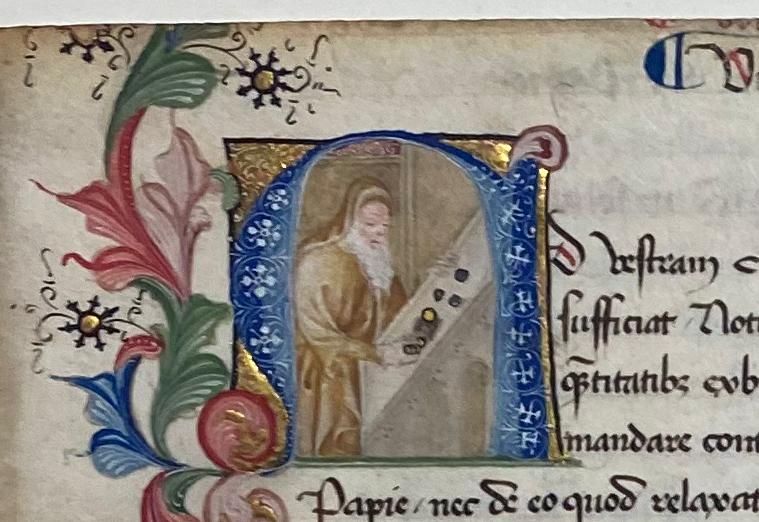 D vestram
sufficiat Not
q̄titatibȝ exb
mandare cont
Papie / nec de eo quod relaxat